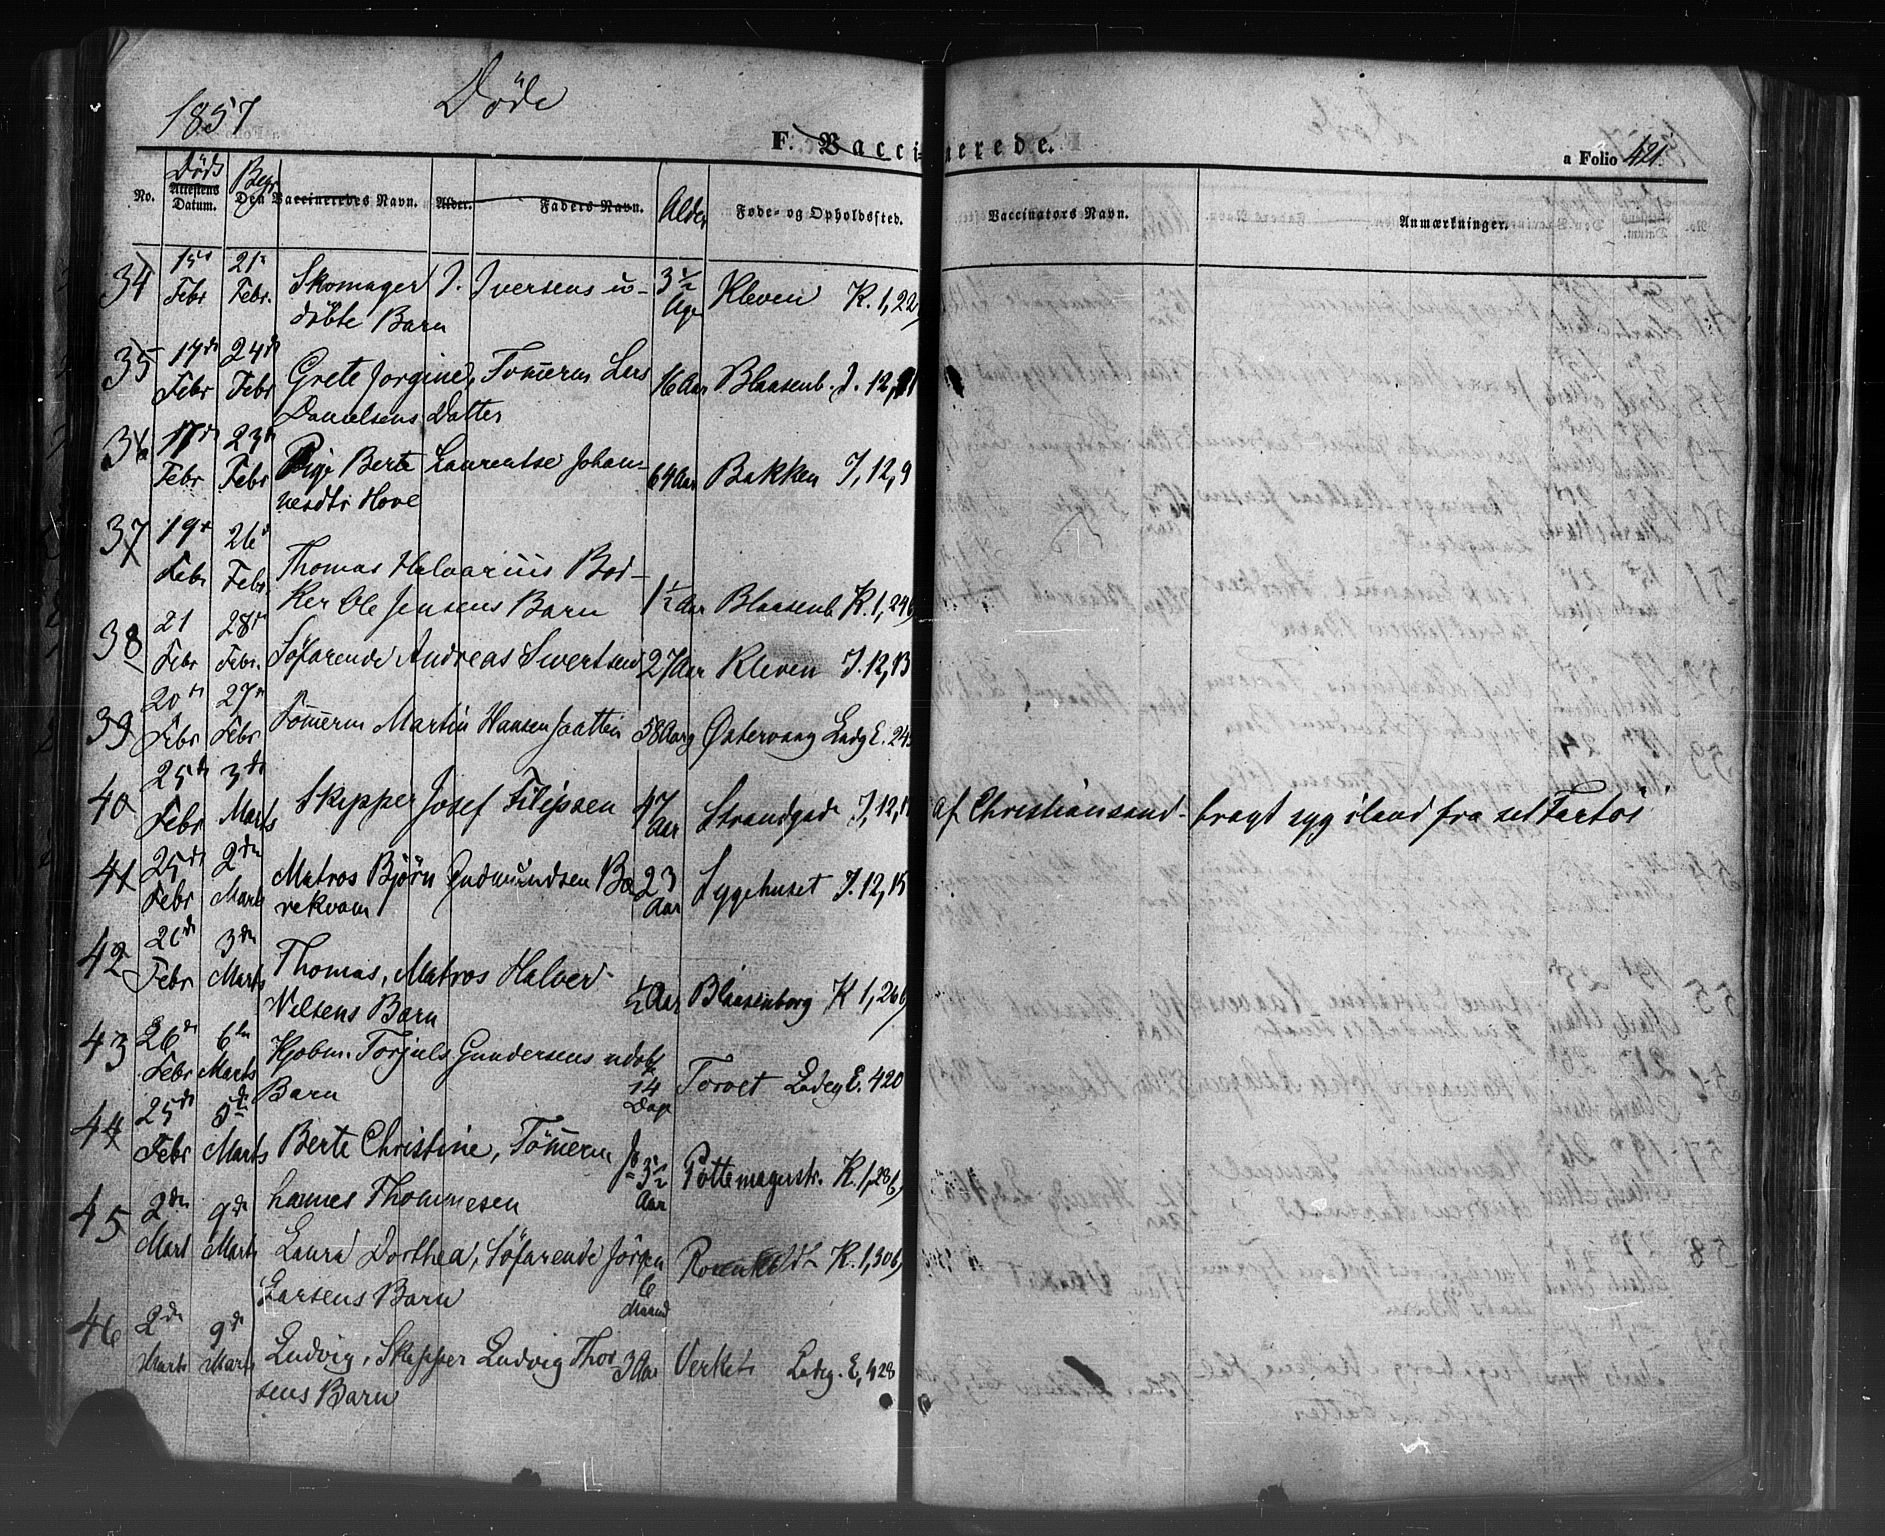 1857 Döde
F. Vaccinerede.
a Folio 421.
No. Döds Attestens Datum. Begr. Den Vaccineredes Navn. Alder. Faders Navn. Alder Føde- og Opholdssted. Vaccinators Navn. Anmærkninger.
34 15de 21de Skomager J. Iversens u- 3 1/2 Kleven K. 1,22
Febr Febr. döbte Barn Uge
35 19de 24de Grete Jorgine, Tömerm Lars 16 Aar Blaasenb. J. 12,
Febr Febr Danielsens Datter
36 17de 23de Pige Berte Laurentse Johan= 64 Aar Bakken J, 12, 9
Febr Febr nesdtr Hove
37 19de 26de Thomas Halvarius Bød-
Febr Febr. ker Ole Jensens Barn 1 1/2 Aar Blaasenb K. 1, 246
38 21 28de Söfarende Andreas Sivertsen 27 Aar Kleven J. 12, 13
Febr Febr.
39 20de 27de Tömerm Martin Hansen Jaatten 58 Aar Østervaag Ladg E. 24
Febr Febr
40 25de 3de Skipper Josef Filipsen 47 Aar Strandgad J, 12, 1 af Christiansand- bragt syg iland fra sit Fartöi
Febr Marts
41 25de 2den Matros Bjørn Gudmundsen Bø 23 Sygehuset J. 12, 15
Febr Marts rekvam Aar
42 26de 3die Thomas, Matros Halvor
Febr Marts Nilsens Barn 1/2 Aar Blaasenborg K 1, 266
43 26de 6te Kjøbm. Torjuls Gundersens udøbt
Febr Marts Barn 14 Dage Torvet Ladeg E. 420
44 25de 5te Berte Christine, Tömerm Jo=
Febr Marts hannes Thommesen 3 1/2 Aar Pottemagerstr. K. 1, 286
45 2den 9de Laura Dorthea, Söfarende Jörgen
Mart Marts Larsens Barn 6 Maaned K. 1, 306
46 2den 9de Ludvig, Skipper Ludvig Thor 3 Aar Verket Ladeg. E, 428
Marts Marts sens Barn